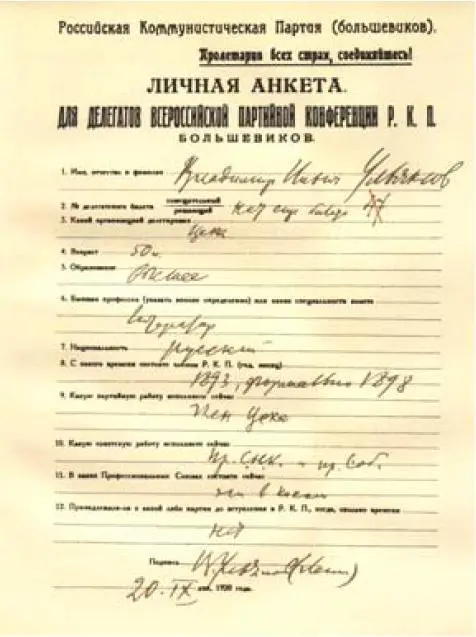 Российская Коммунистическая Партия (большевиков).
Пролетарии всех стран, соединяйтесь!
ЛИЧНАЯ АНКЕТА.
ДЛЯ ДЕЛЕГАТОВ ВСЕРОССИЙСКОЙ ПАРТИЙНОЙ КОНФЕРЕНЦИИ Р. К. П.
БОЛЬШЕВИКОВ.
1. Имя, отчество и фамилия Владимир Ильич Ульянов
2. № делегатского билета совещательный
решающий нет еще
3. Какой организацией делегирован
Цека
4. Возраст 50 л.
5. Образование высшее
6. Бывшая профессия (указать вполне определенно) или какая специальность имеете
литератор
7. Национальность русский
8. С какого времени состоите членом Р. К. П. (год, месяц)
1893, формально 1898
9. Какую партийную работу исполняете сейчас
член Цека
10. Какую советскую работу исполняете сейчас
Пр. С.Н.К. и пр. Соб.
11. В каком Профессиональном Союзе состоите сейчас
12. Принадлежали-ли к какой либо партии до вступления в Р. К. П., когда, сколько времени
нет
Подпись В. Ульянов (Ленин)
20. IX 1920 года.